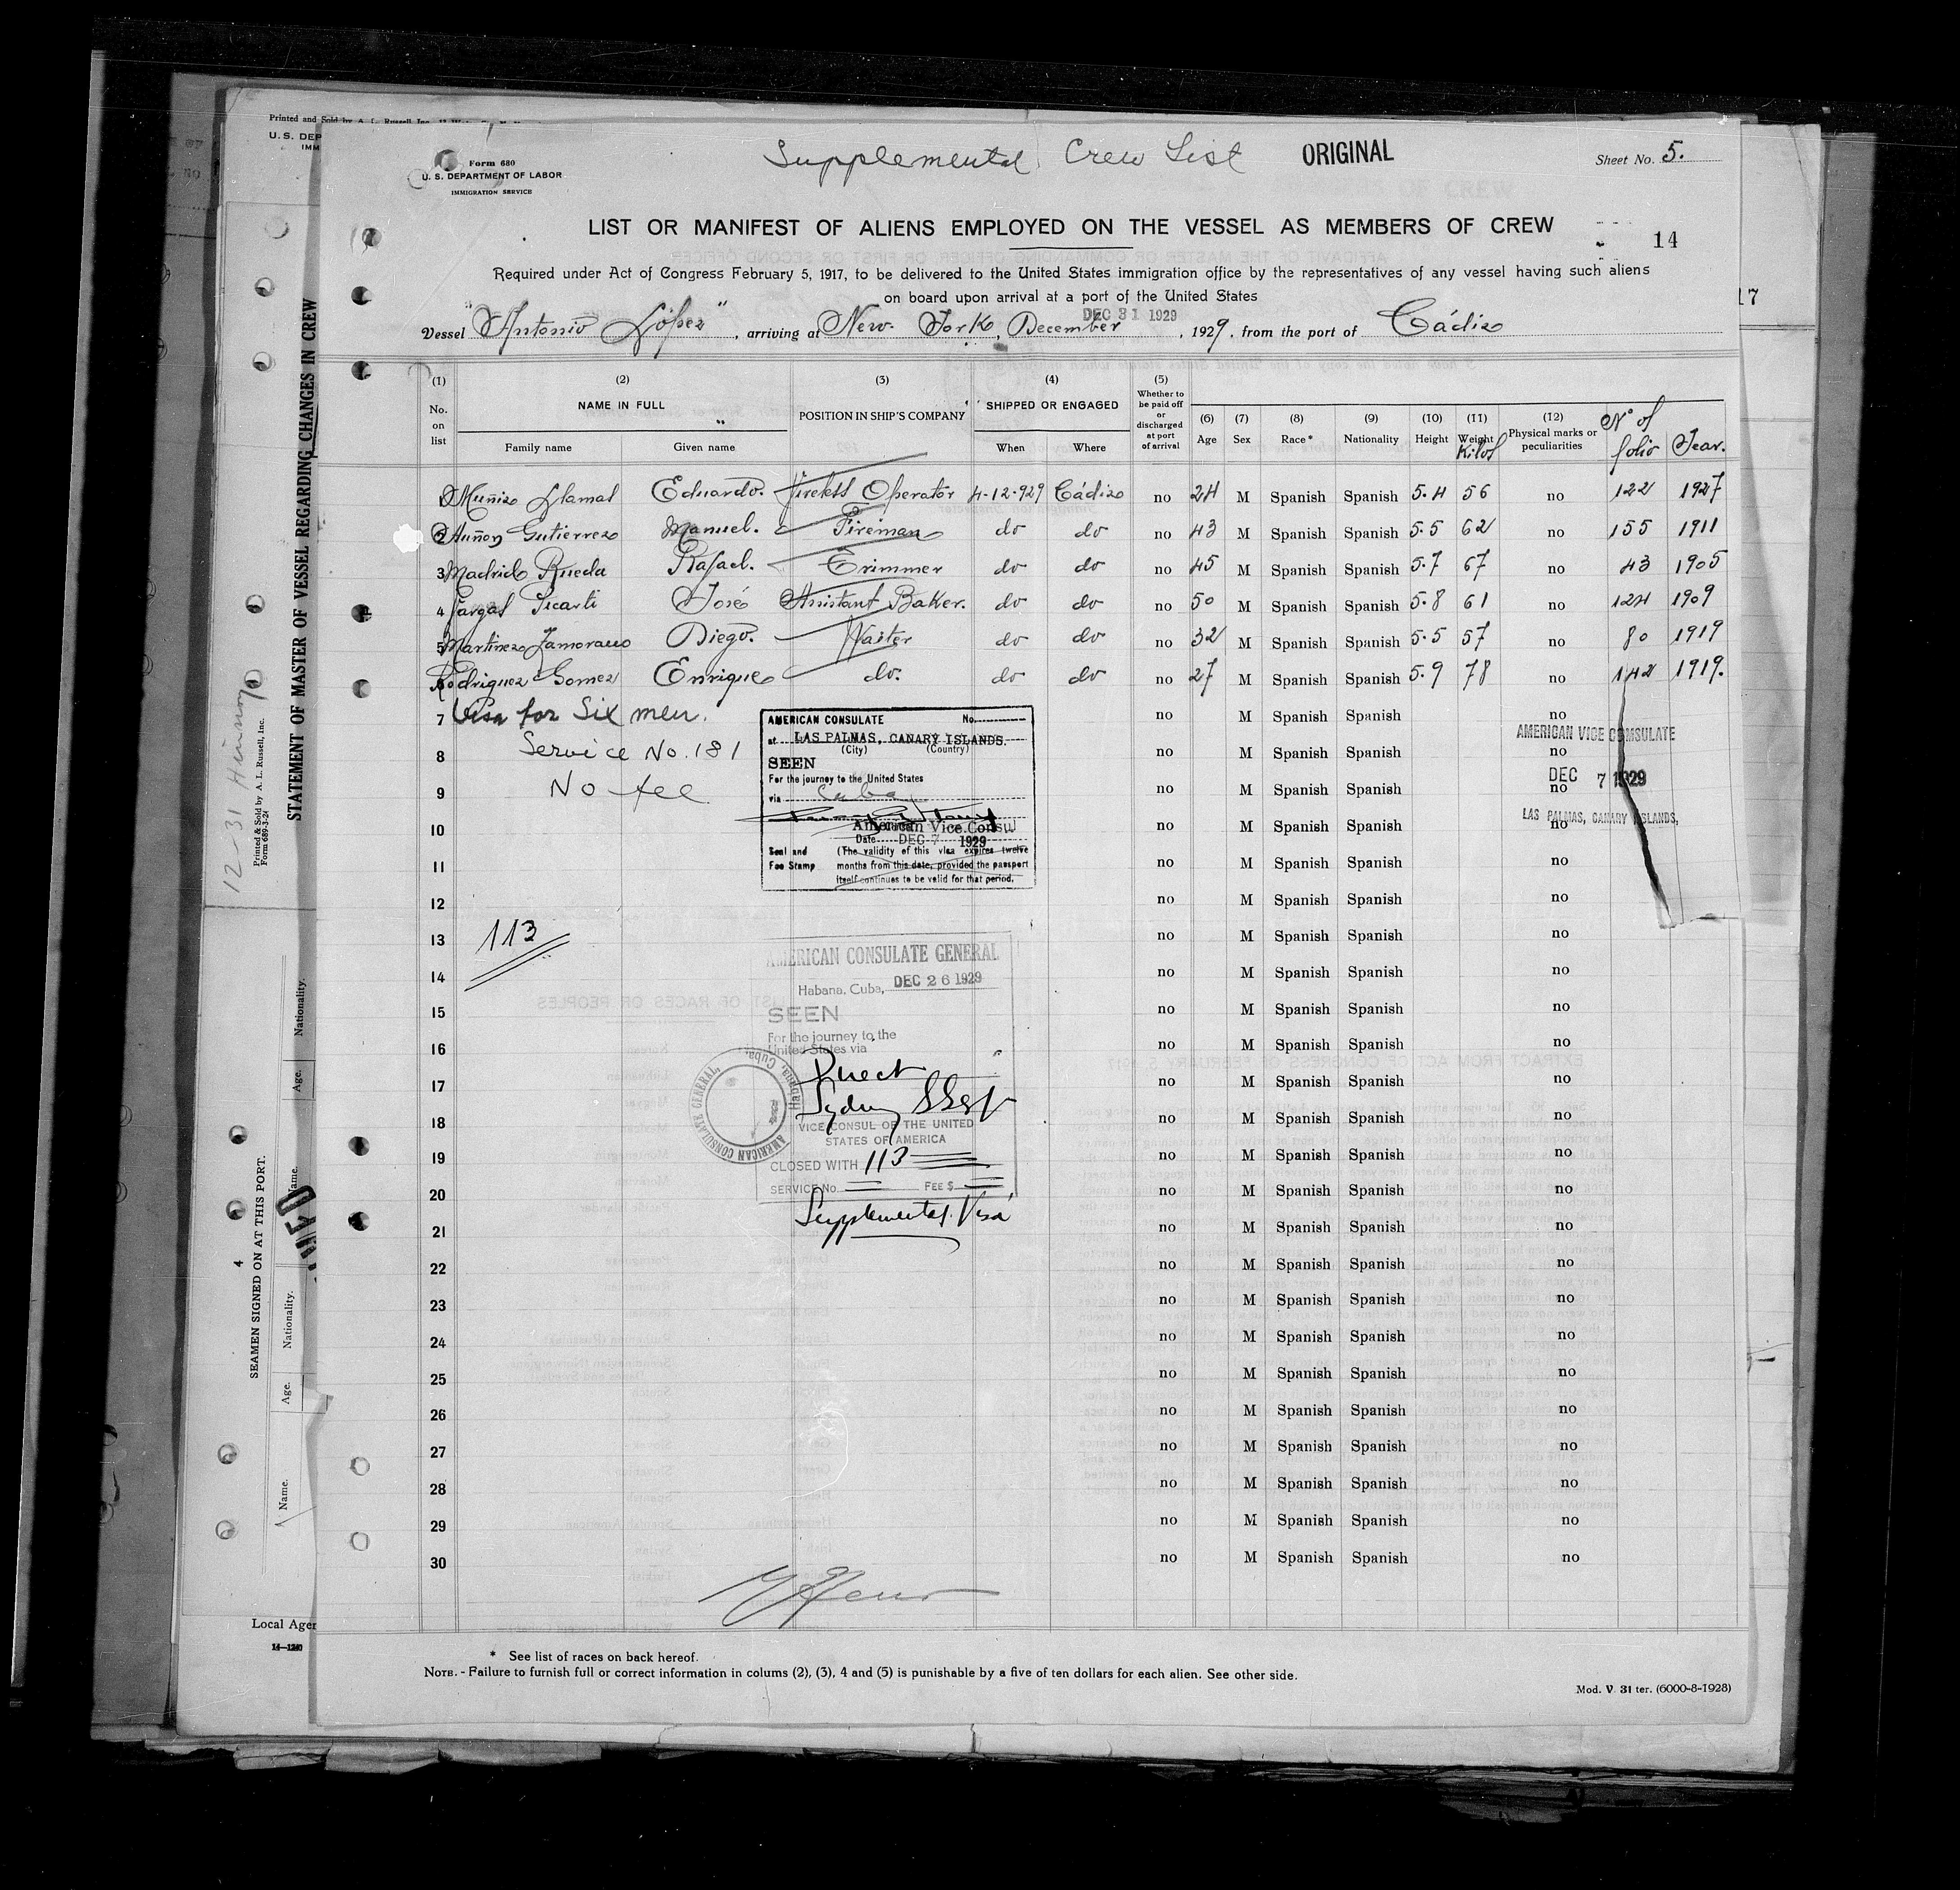 Form 680
U. S. DEPARTMENT OF LABOR
IMMIGRATION SERVICE
Supplemental Crew List ORIGINAL
Sheet No. 5.
LIST OR MANIFEST OF ALIENS EMPLOYED ON THE VESSEL AS MEMBERS OF CREW
14
Required under Act of Congress February 5, 1917, to be delivered to the United States immigration office by the representatives of any vessel having such aliens
on board upon arrival at a port of the United States
DEC 31 1929
Vessel "Antonio López", arriving at New-York, December, 1929, from the port of Cádiz
(1) No. on list (2) NAME IN FULL Family name Given name (3) POSITION IN SHIP'S COMPANY (4) SHIPPED OR ENGAGED When Where (5) Whether to be paid off or discharged at port of arrival (6) Age (7) Sex (8) Race* (9) Nationality (10) Height (11) Weight Kilos (12) Physical marks or peculiarities Nº of folio Year.
1 Muñiz Llamas Eduardo. Wireless Operator 4-12-929 Cádiz no 24 M Spanish Spanish 5.4 56 no 122 1927
2 Gutierrez Manuel. Fireman do do no 43 M Spanish Spanish 5.5 62 no 155 1911
3 Madrid Rueda Rafael. Trimmer do do no 45 M Spanish Spanish 5.7 67 no 43 1905
4 Vargas Picarti José Assistant Baker. do do no 50 M Spanish Spanish 5.8 61 no 124 1909
5 Martinez Zamorano Diego. Waiter do do no 32 M Spanish Spanish 5.5 57 no 80 1919
6 Rodriguez Gomez Enrique do. do do no 27 M Spanish Spanish 5.9 78 no 142 1919.
7 Visa for Six men. no M Spanish Spanish no
8 Service No. 181 no M Spanish Spanish no
9 No fee no M Spanish Spanish no
10 no M Spanish Spanish no
11 no M Spanish Spanish no
12 no M Spanish Spanish no
13 113 no M Spanish Spanish no
14 no M Spanish Spanish no
15 no M Spanish Spanish no
16 no M Spanish Spanish no
17 no M Spanish Spanish no
18 no M Spanish Spanish no
19 no M Spanish Spanish no
20 no M Spanish Spanish no
21 no M Spanish Spanish no
22 no M Spanish Spanish no
23 no M Spanish Spanish no
24 no M Spanish Spanish no
25 no M Spanish Spanish no
26 no M Spanish Spanish no
27 no M Spanish Spanish no
28 no M Spanish Spanish no
29 no M Spanish Spanish no
30 no M Spanish Spanish no
AMERICAN CONSULATE No.
at LAS PALMAS, CANARY ISLANDS.
(City) (Country)
SEEN
For the journey to the United States
via Cuba
American Vice Consul
Date DEC 7 1929
Seal and Fee Stamp
(The validity of this visa expires twelve
months from this date, provided the passport
itself continues to be valid for that period.
AMERICAN VICE CONSULATE
DEC 7 1929
LAS PALMAS, CANARY ISLANDS,
AMERICAN CONSULATE GENERAL
Habana, Cuba, DEC 26 1929
SEEN
For the journey to the
United States via
Direct
VICE CONSUL OF THE UNITED
STATES OF AMERICA
CLOSED WITH 113
SERVICE No. FEE $
Supplemental Visa
AMERICAN CONSULATE GENERAL, Habana, Cuba.
* See list of races on back hereof.
NOTE. - Failure to furnish full or correct information in colums (2), (3), 4 and (5) is punishable by a five of ten dollars for each alien. See other side.
Mod. V. 31 ter. (6000-8-1928)
Printed and Sold by A. L. Russell, Inc.
U. S. DEP
IMM
17
STATEMENT OF MASTER OF VESSEL REGARDING CHANGES IN CREW
Printed & Sold by A. L. Russell, Inc.
Form 689-3-24
12-31
SEAMEN SIGNED ON AT THIS PORT.
4
Name. Age. Nationality.
Name. Age. Nationality.
Local Agen
14-1240